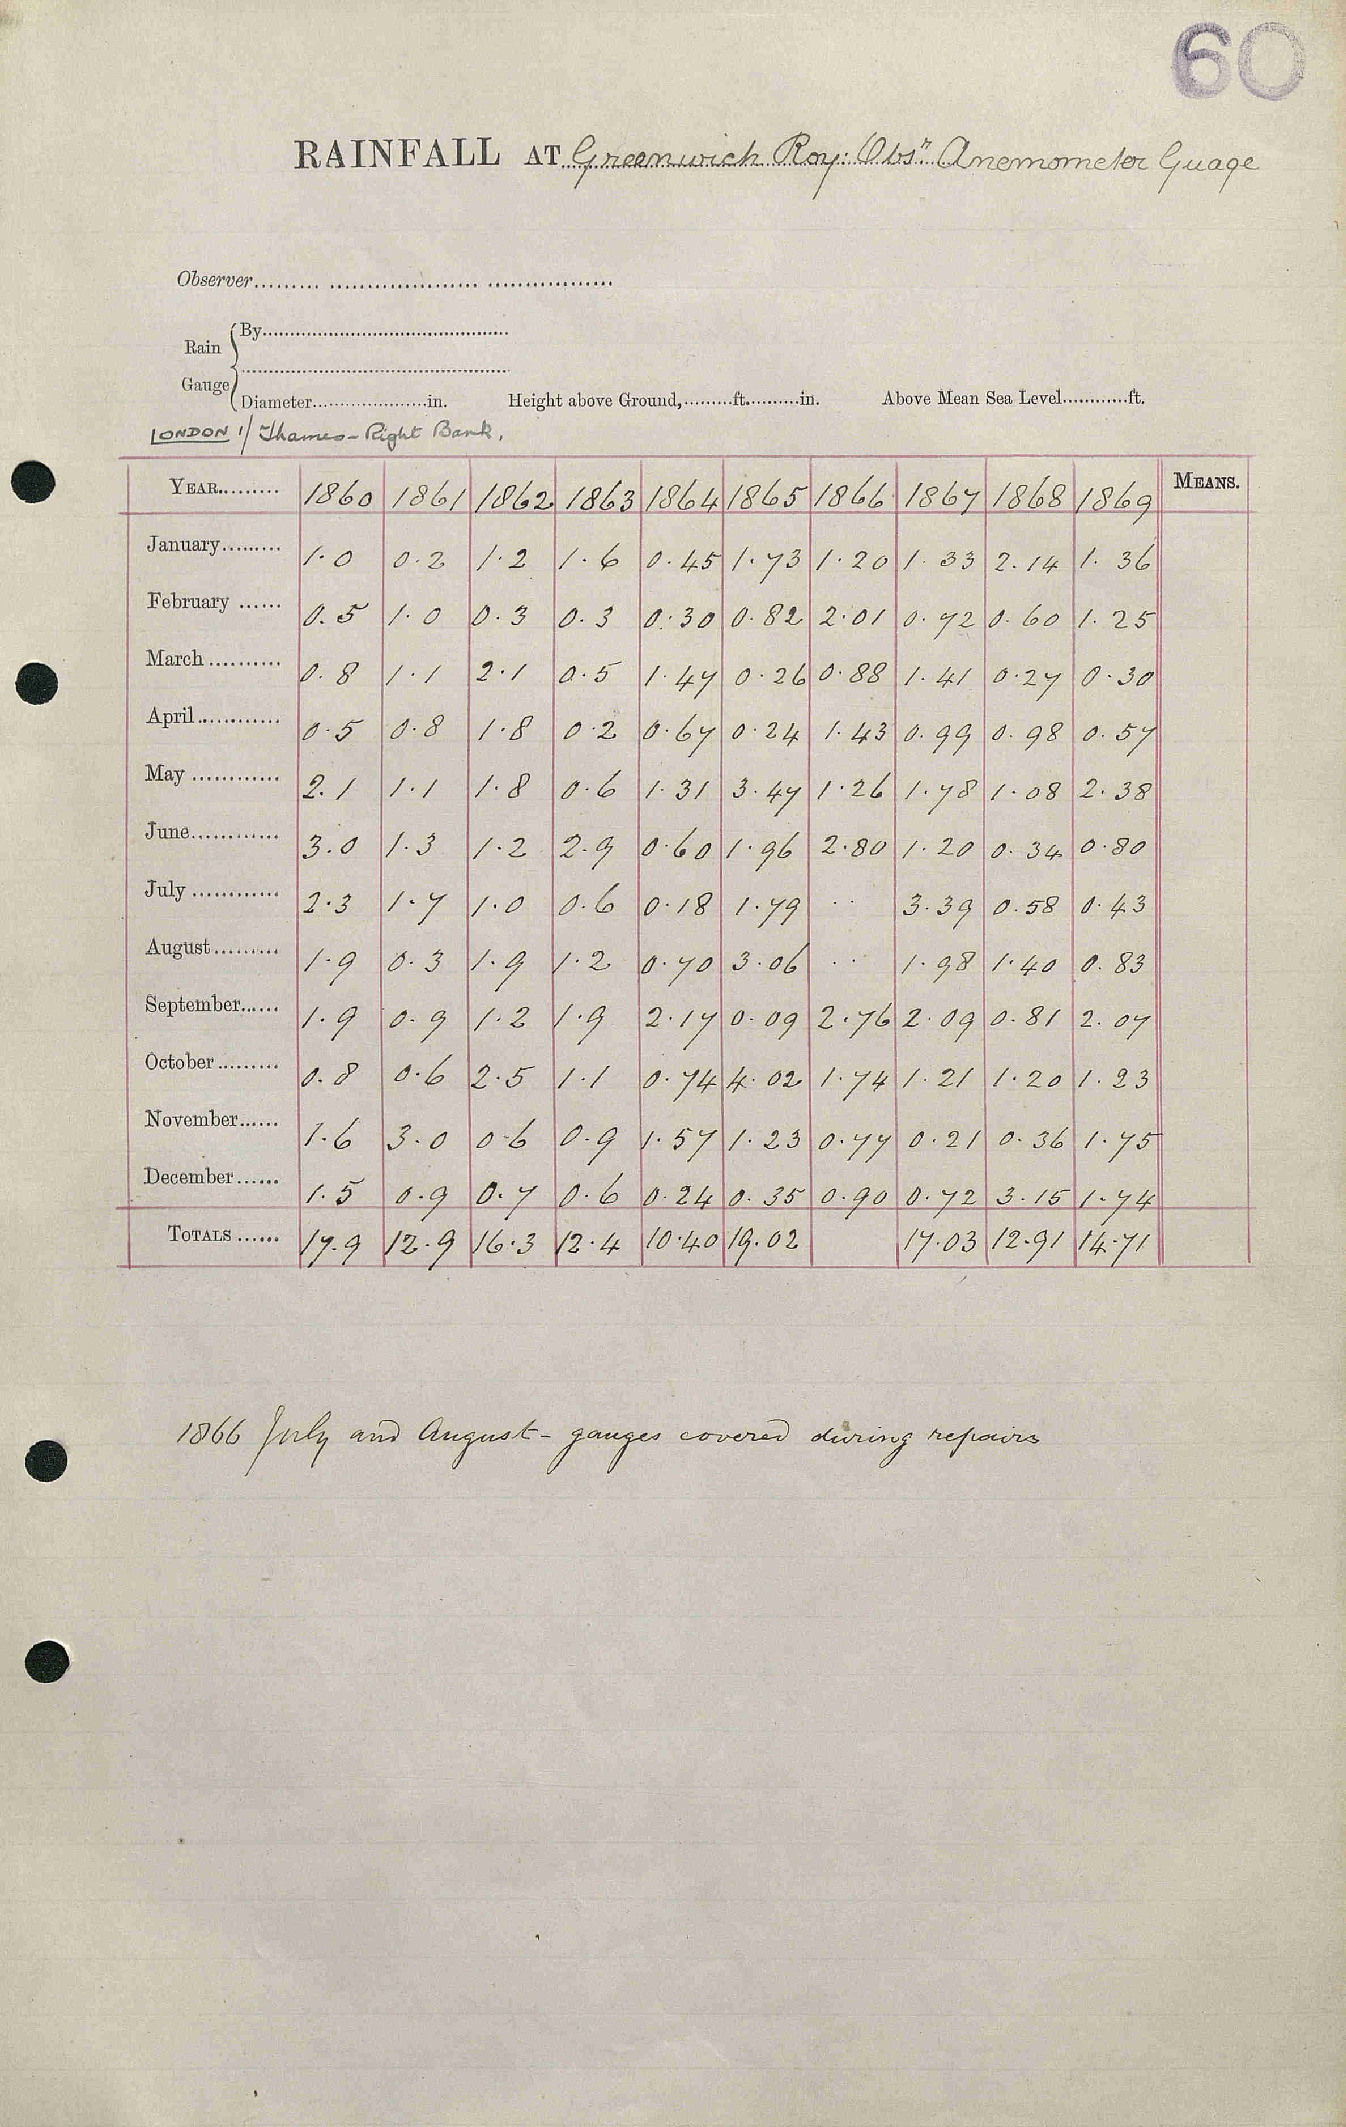 60
RAINFALL AT Greenwich Roy: Obsn Anemometer Guage
Observer
Rain Gauge By
Diameter in. Height above Ground, ft. in. Above Mean Sea Level ft.
LONDON 1/ Thames - Right Bank.
YEAR 1860 1861 1862 1863 1864 1865 1866 1867 1868 1869 MEANS.
January 1.0 0.2 1.2 1.6 0.45 1.73 1.20 1.33 2.14 1.36
February 0.5 1.0 0.3 0.3 0.30 0.82 2.01 0.72 0.60 1.25
March 0.8 1.1 2.1 0.5 1.47 0.26 0.88 1.41 0.27 0.30
April 0.5 0.8 1.8 0.2 0.67 0.24 1.43 0.99 0.98 0.57
May 2.1 1.1 1.8 0.6 1.31 3.47 1.26 1.78 1.08 2.38
June 3.0 1.3 1.2 2.9 0.60 1.96 2.80 1.20 0.34 0.80
July 2.3 1.7 1.0 0.6 0.18 1.79 .. 3.39 0.58 0.43
August 1.9 0.3 1.9 1.2 0.70 3.06 .. 1.98 1.40 0.83
September 1.9 0.9 1.2 1.9 2.17 0.09 2.76 2.09 0.81 2.07
October 0.8 0.6 2.5 1.1 0.74 4.02 1.74 1.21 1.20 1.23
November 1.6 3.0 0.6 0.9 1.57 1.23 0.77 0.21 0.36 1.75
December 1.5 0.9 0.7 0.6 0.24 0.35 0.90 0.72 3.15 1.74
TOTALS 17.9 12.9 16.3 12.4 10.40 19.02 17.03 12.91 14.71
1866 July and August - gauges covered during repairs